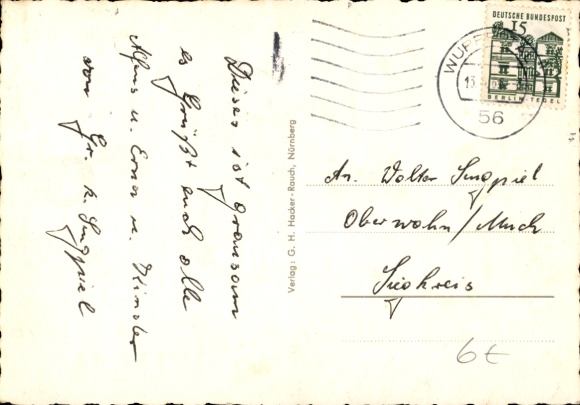 Dieses ist grausam
es Grüßt euch alle
Alfons u. Erna u. Kinder
von Gr. k. Jungpiel
Verlag: G. H. Hacker-Rauch, Nürnberg
DEUTSCHE BUNDESPOST
15
BERLIN-TEGEL
WUPPE
13
56
An. Walter Jungpiel
Oberwahn/Much
Siegkreis
6t